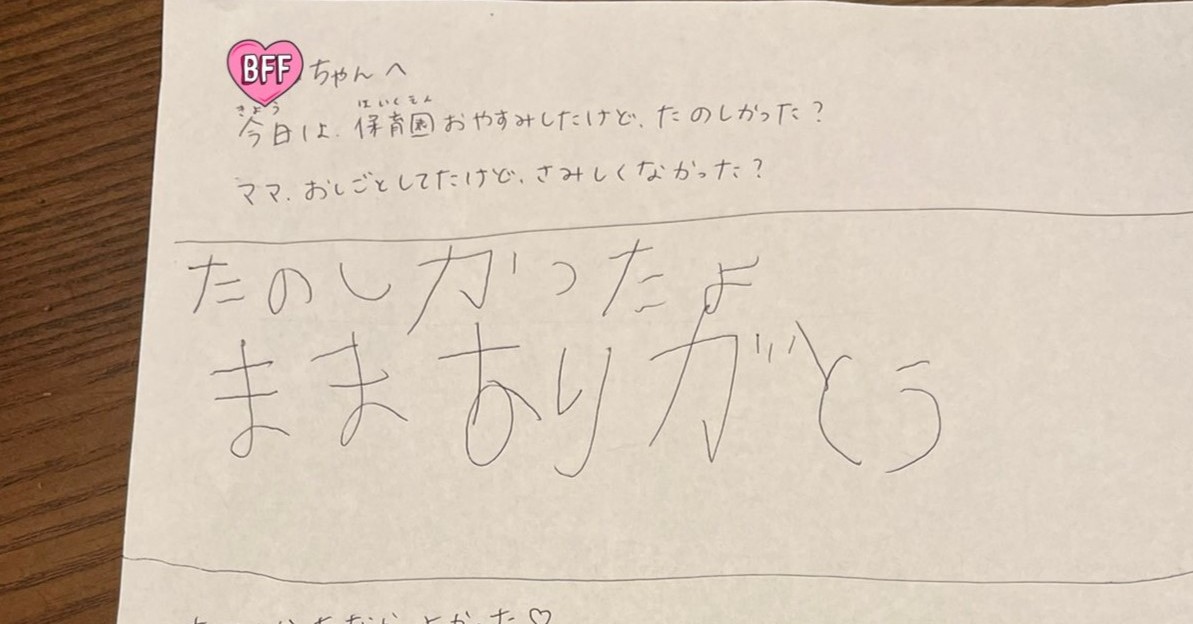 BFFちゃんへ
きょう ほいくえん
今日は、保育園おやすみしたけど、たのしかった？
ママ、おしごとしてたけど、さみしくなかった？
たのしかったよ
ままありがとう